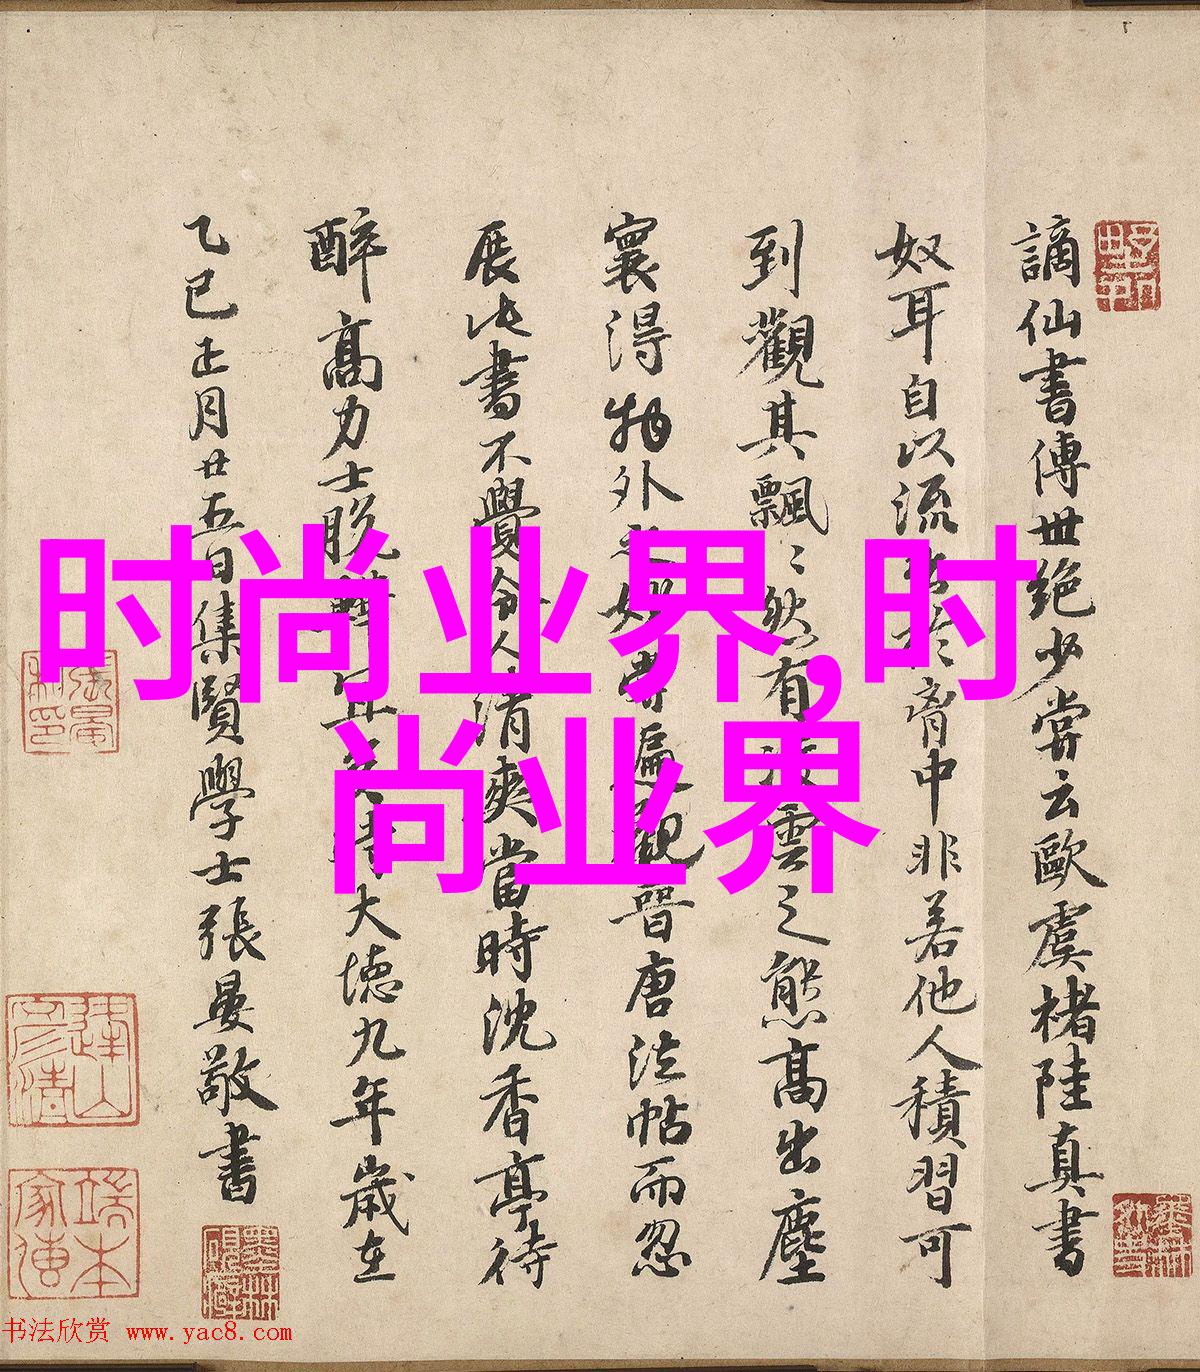 謫仙書傳世絶少嘗云歐虞褚陸真書
奴耳自以流出於胷中非若他人積習可
到觀其飄〻然有凌雲之態高出塵
寰得物外之妙嘗遍觀晉唐法帖而忽
展此書不覺令人清爽當時沈香亭待
醉高力士脱鞾大德九年歲在
乙巳正月廿五日集賢學士張晏敬書
时尚业界,时
尚业界
书法欣赏 www.yac8.com